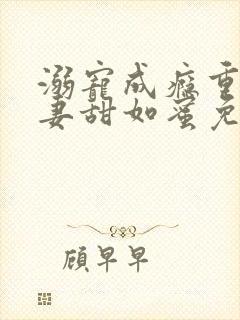 溺寵成癮重
妻甜如蜜免
顧早早